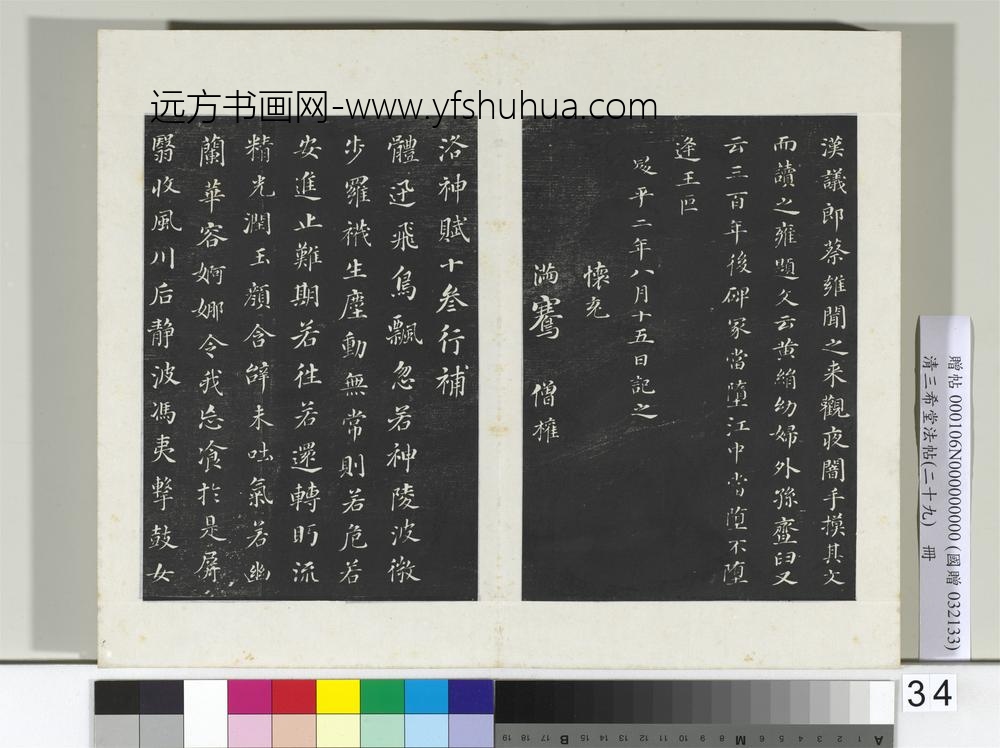 远方书画网-www.yfshuhua.com
漢議郎蔡雍聞之来觀夜闇手摸其文
而讀之雍題文云黄絹幼婦外孫齏臼又
云三百年後碑冢當墮江中當墮不墮
逢王叵
昇平二年八月十五日記之
懷充
滿騫 僧權
洛神賦十叁行補
體迅飛鳥飄忽若神陵波微
步羅襪生塵動無常則若危若
安進止難期若往若還轉眄流
精光潤玉顏含辭未吐氣若幽
蘭華容婀娜令我忘飡於是屏
翳收風川后静波馮夷擊鼓女
贈帖 000106N000000000 (國贈 032133)
清三希堂法帖(二十九) 冊
34